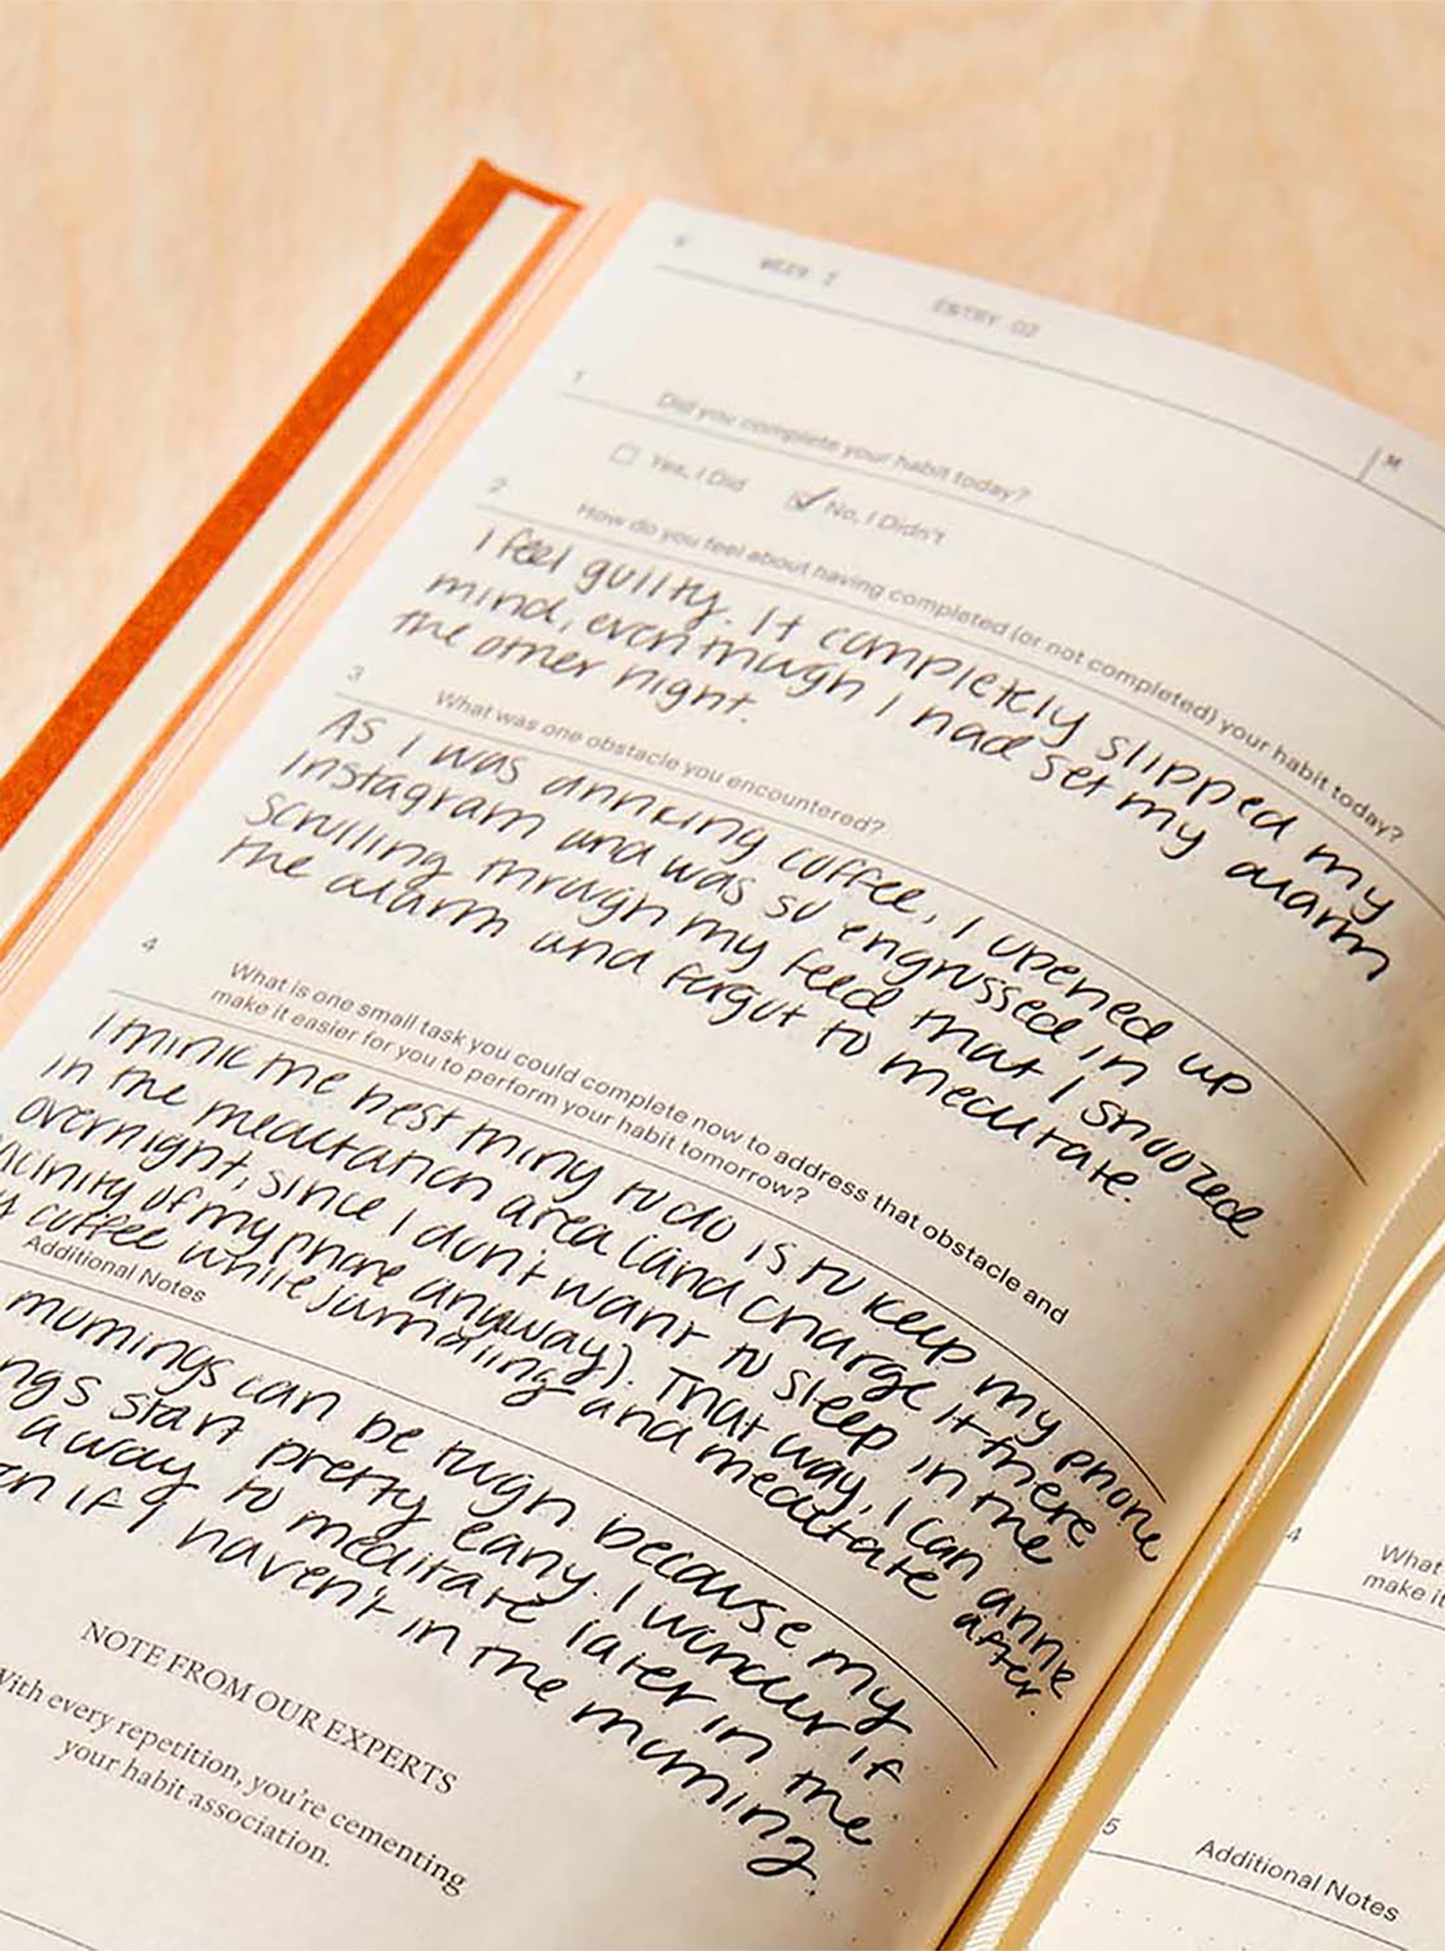 WEEK 2 ENTRY 02
M
1 Did you complete your habit today?
Yes, I Did No, I Didn't
2 How do you feel about having completed (or not completed) your habit today?
I feel guilty. It completely slipped my
mind, even though I had set my alarm
the other night.
3 What was one obstacle you encountered?
As I was drinking coffee, I opened up
Instagram and was so engrossed in
scrolling through my feed that I snoozed
the alarm and forgot to meditate.
4 What is one small task you could complete now to address that obstacle and
make it easier for you to perform your habit tomorrow?
I think the best thing to do is to keep my phone
in the meditation area (and charge it there
overnight, since I don't want to sleep in the
vicinity of my phone anyway). That way, I can drink
my coffee while journaling and meditate after
Additional Notes
mornings can be tough because my
start pretty early. I wonder if
away to meditate later in the
if I haven't in the morning.
NOTE FROM OUR EXPERTS
With every repetition, you're cementing
your habit association.
4 What
make it
5 Additional Notes